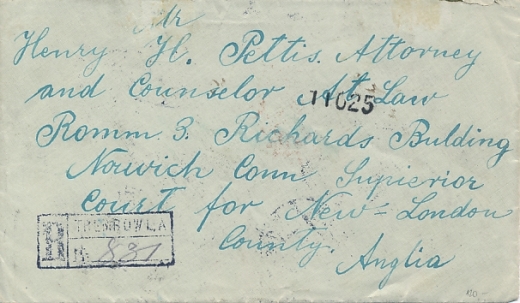 Mr
Henry H. Pettis. Attorney
and Counselor At Law
11025
Romm 3. Richards Bulding
Norwich Conn Supierior
Court for New-London
County.
Anglia
R
№ 831